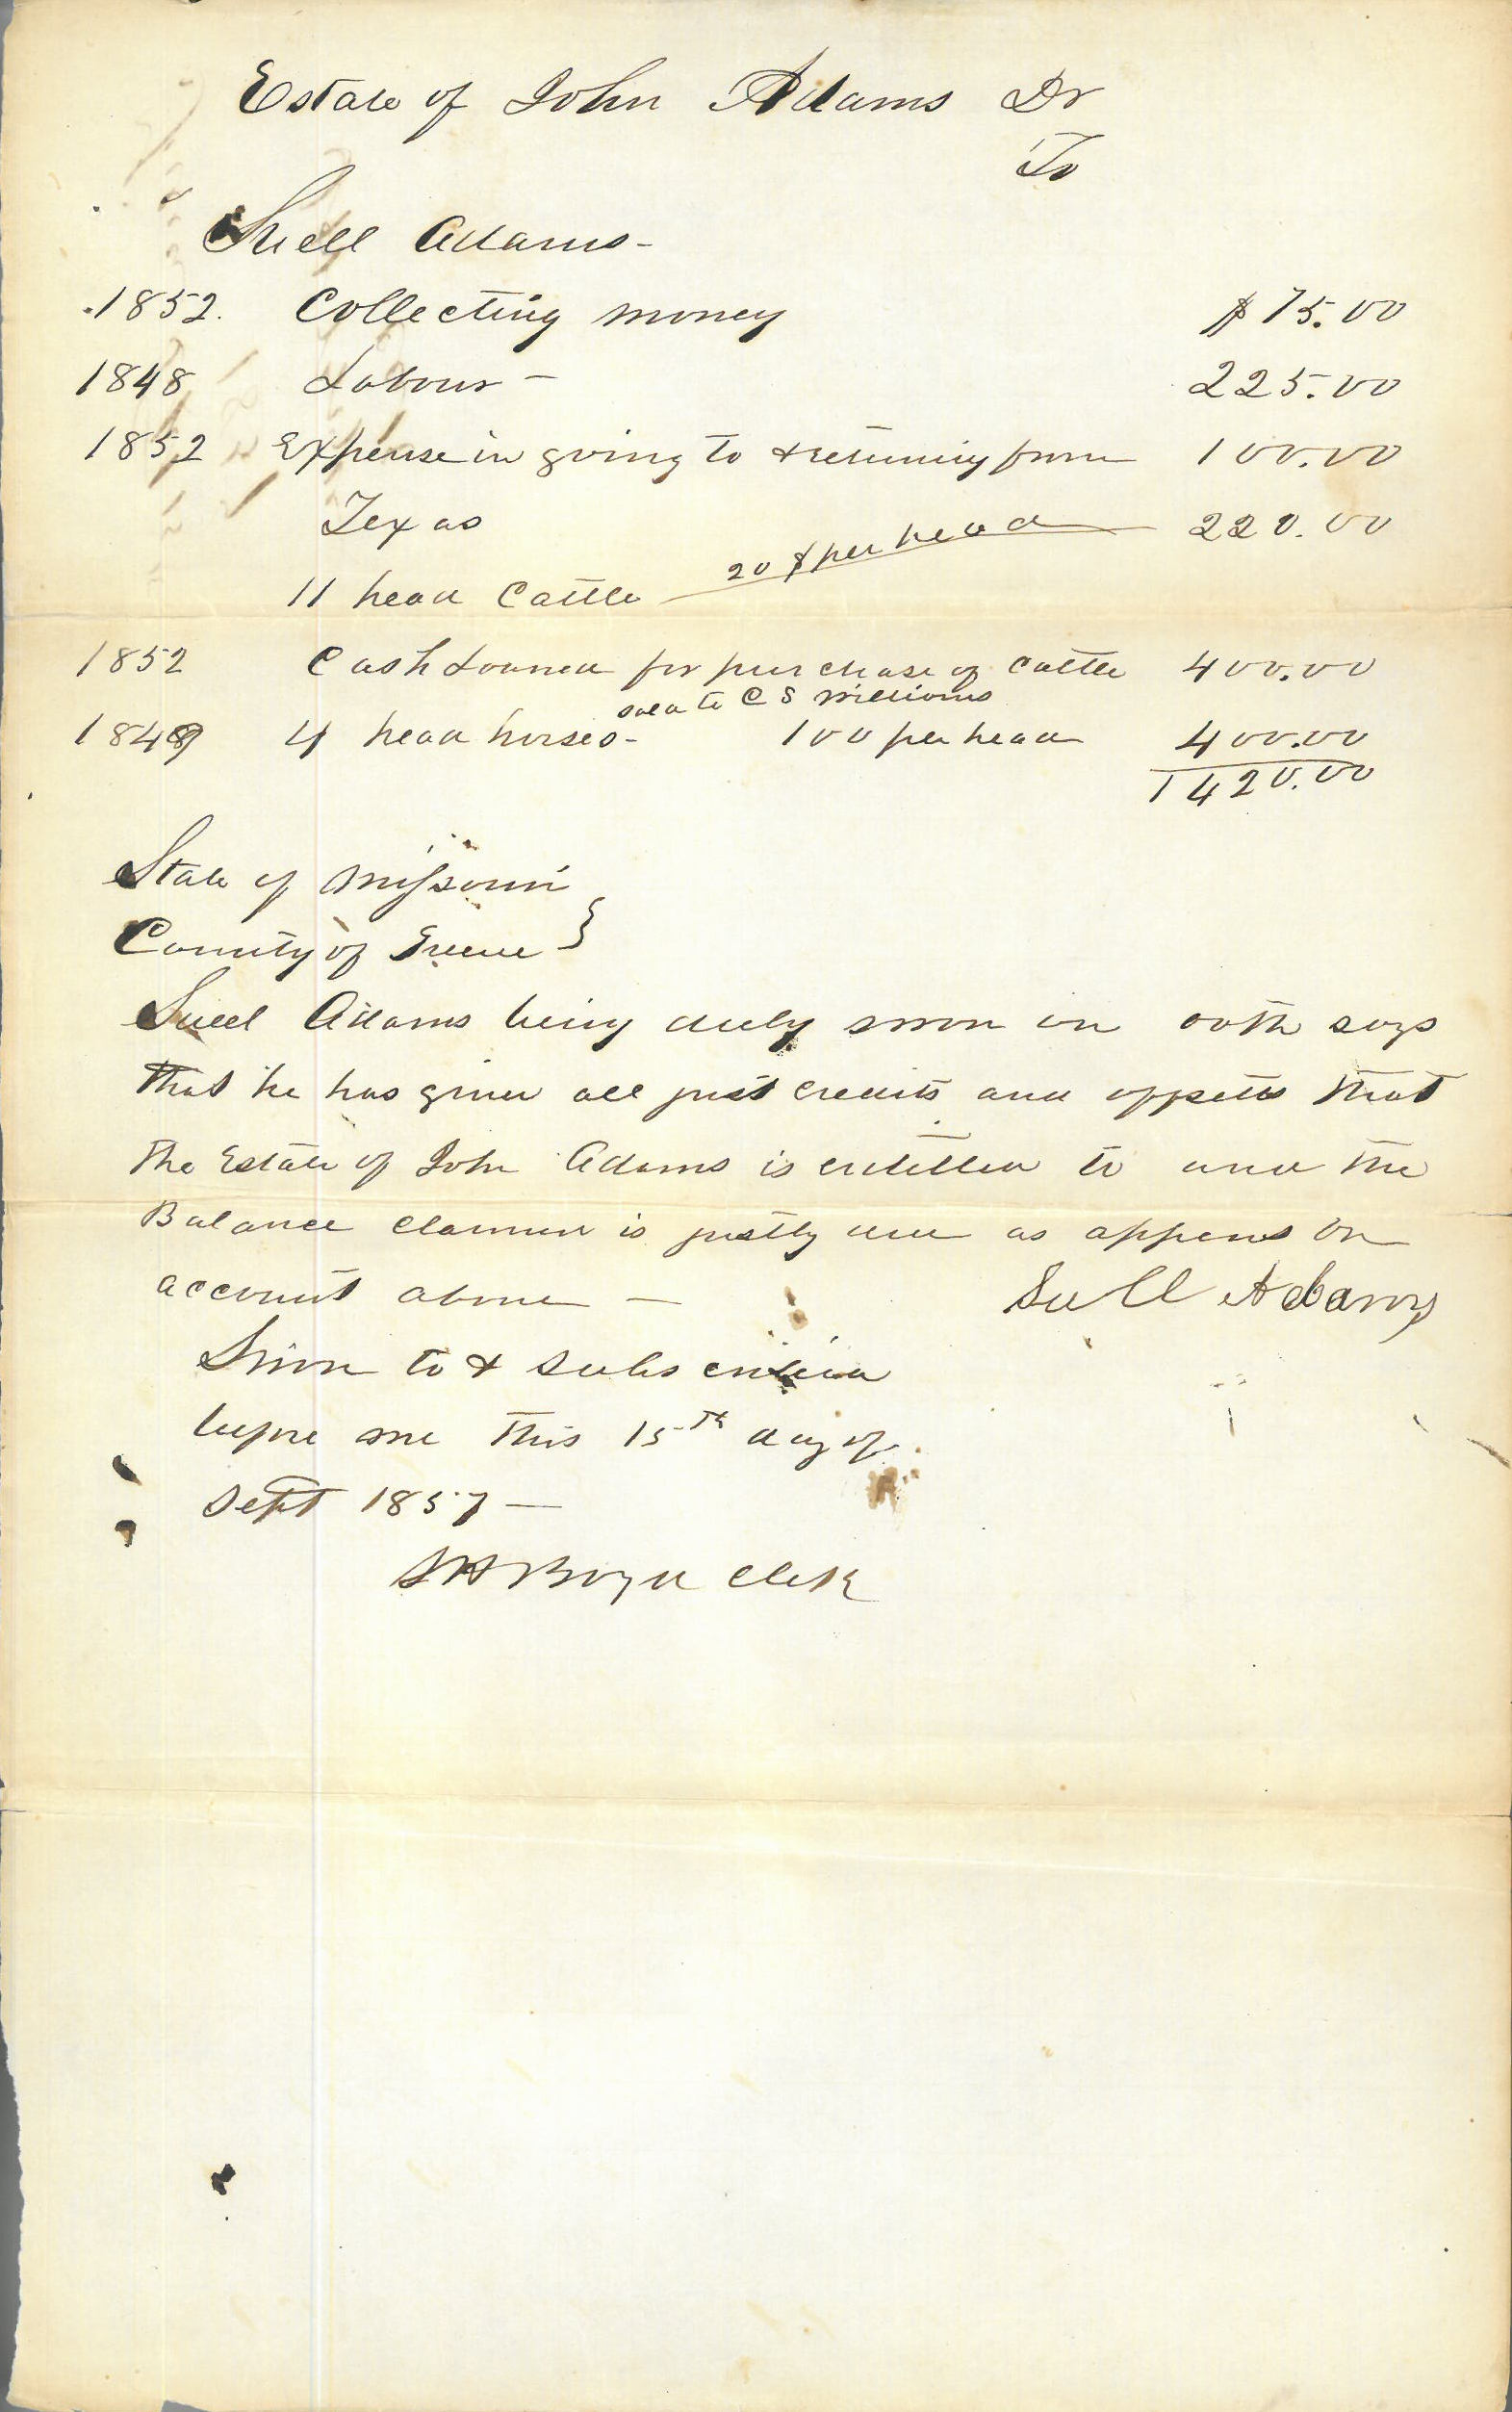 Estate of John Adams Dr
To
Suell Adams -
1852. Collecting money $75.00
1848 Labour - 225.00
1852 Expense in going to & returning from 100.00
Texas
11 head Cattle 20 $ per head 220.00
1852 Cash Loaned for purchase of Cattle 400.00
sold to C S Williams
1849 4 head horses - 100 per head 400.00
1420.00
State of Missouri
County of Greene }
Suell Adams being duly sworn on oath says
that he has given all just credits and offsetts that
the Estate of John Adams is entitled to and the
Balance claimed is justly due as appears on
account above —
Suell Adams
Sworn to & subscribed
before me this 15th day of
Sept 1857 —
Boyd Clerk